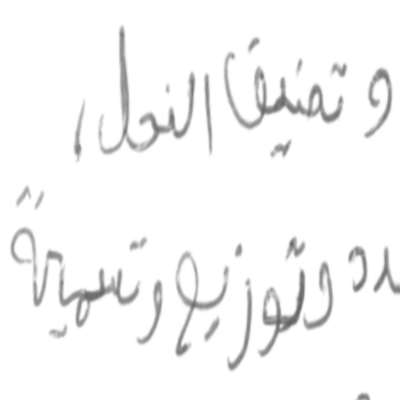 وتصنيف النحل،
وتوزيع وتسمية